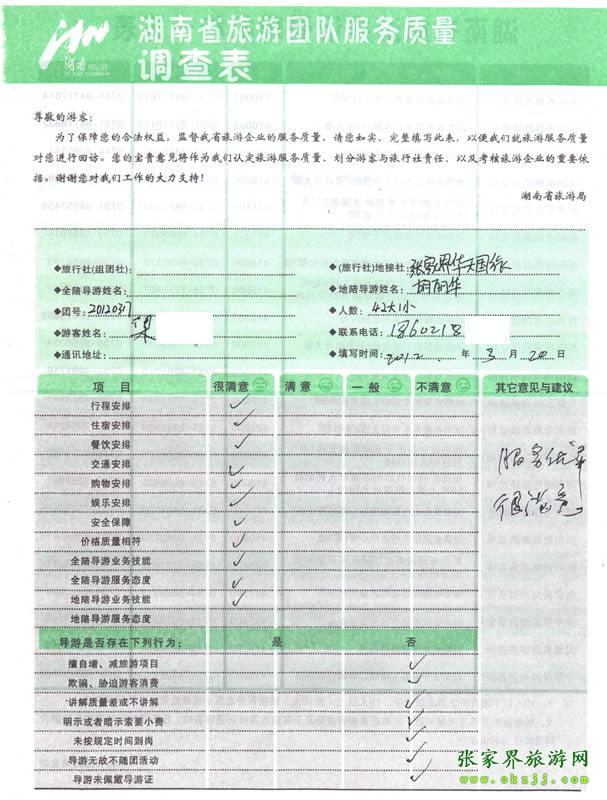 湖南旅游
湖南省旅游团队服务质量
调查表
尊敬的游客：
为了保障您的合法权益，监督我省旅游企业的服务质量，请您如实、完整填写此表，以便我们就旅游服务质量
对您进行回访。您的宝贵意见将作为我们认定旅游服务质量、划分游客与旅行社责任、以及考核旅游企业的重要依
据。谢谢您对我们工作的大力支持！
湖南省旅游局
◆旅行社(组团社)：
◆(旅行社)地接社：张家界华天国旅
◆全陪导游姓名：
◆地陪导游姓名：胡丽华
◆团号：20120317
◆人数：42大1小
◆游客姓名：梁
◆联系电话：186021
◆通讯地址：
◆填写时间：2012 年 3 月 20 日
项 目 很满意 满 意 一 般 不满意 其它意见与建议
行程安排 ✓
住宿安排 ✓
餐饮安排 ✓
交通安排 ✓
购物安排 ✓
娱乐安排 ✓
安全保障 ✓
价格质量相符 ✓
全陪导游业务技能 ✓
全陪导游服务态度 ✓
地陪导游业务技能 ✓
地陪导游服务态度
服务优异
很满意
导游是否存在下列行为： 是 否
擅自增、减旅游项目 ✓
欺骗、胁迫游客消费 ✓
讲解质量差或不讲解 ✓
明示或者暗示索要小费 ✓
未按规定时间到岗 ✓
导游无故不随团活动 ✓
导游未佩戴导游证 ✓
张家界旅游网
www.okzjj.com